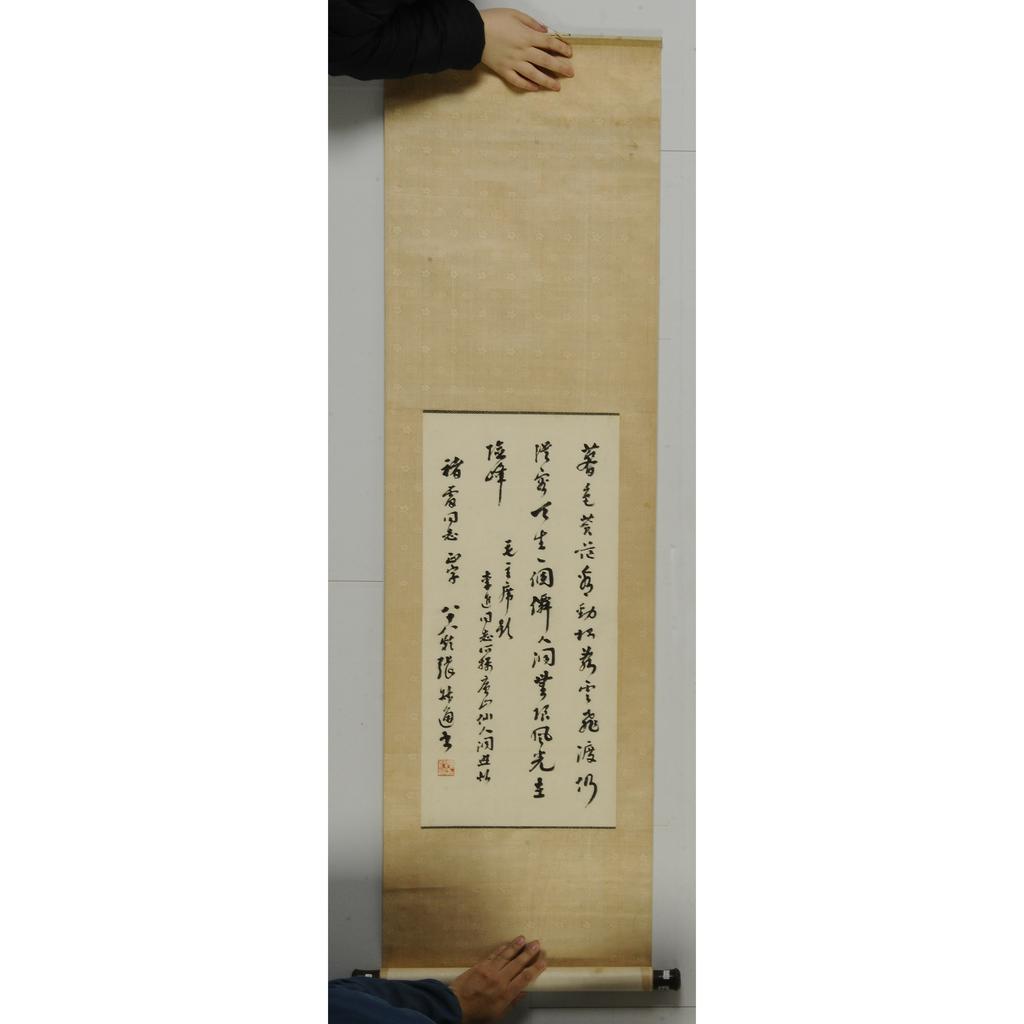 暮色蒼茫看勁松亂雲飛渡仍
從容天生一個僊人洞無限風光在
險峰
毛主席題
李進同志所攝廬山仙人洞照
褚同志正字 八十八齡張叔通書